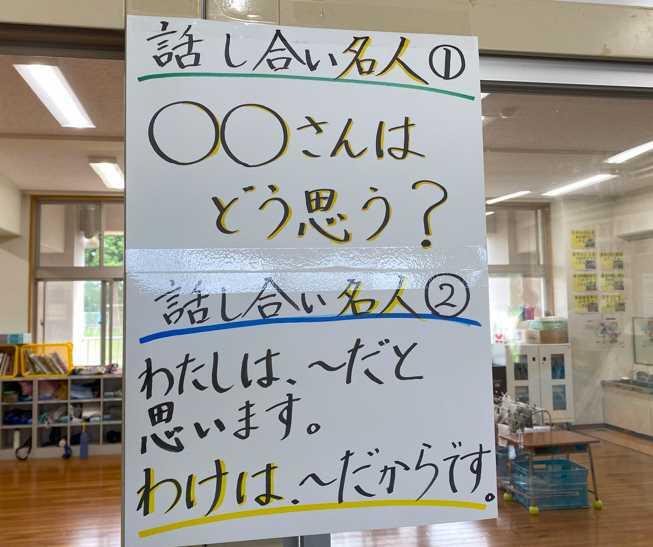 話し合い名人①
〇〇さんは
どう思う？
話し合い名人②
わたしは、～だと
思います。
わけは、～だからです。